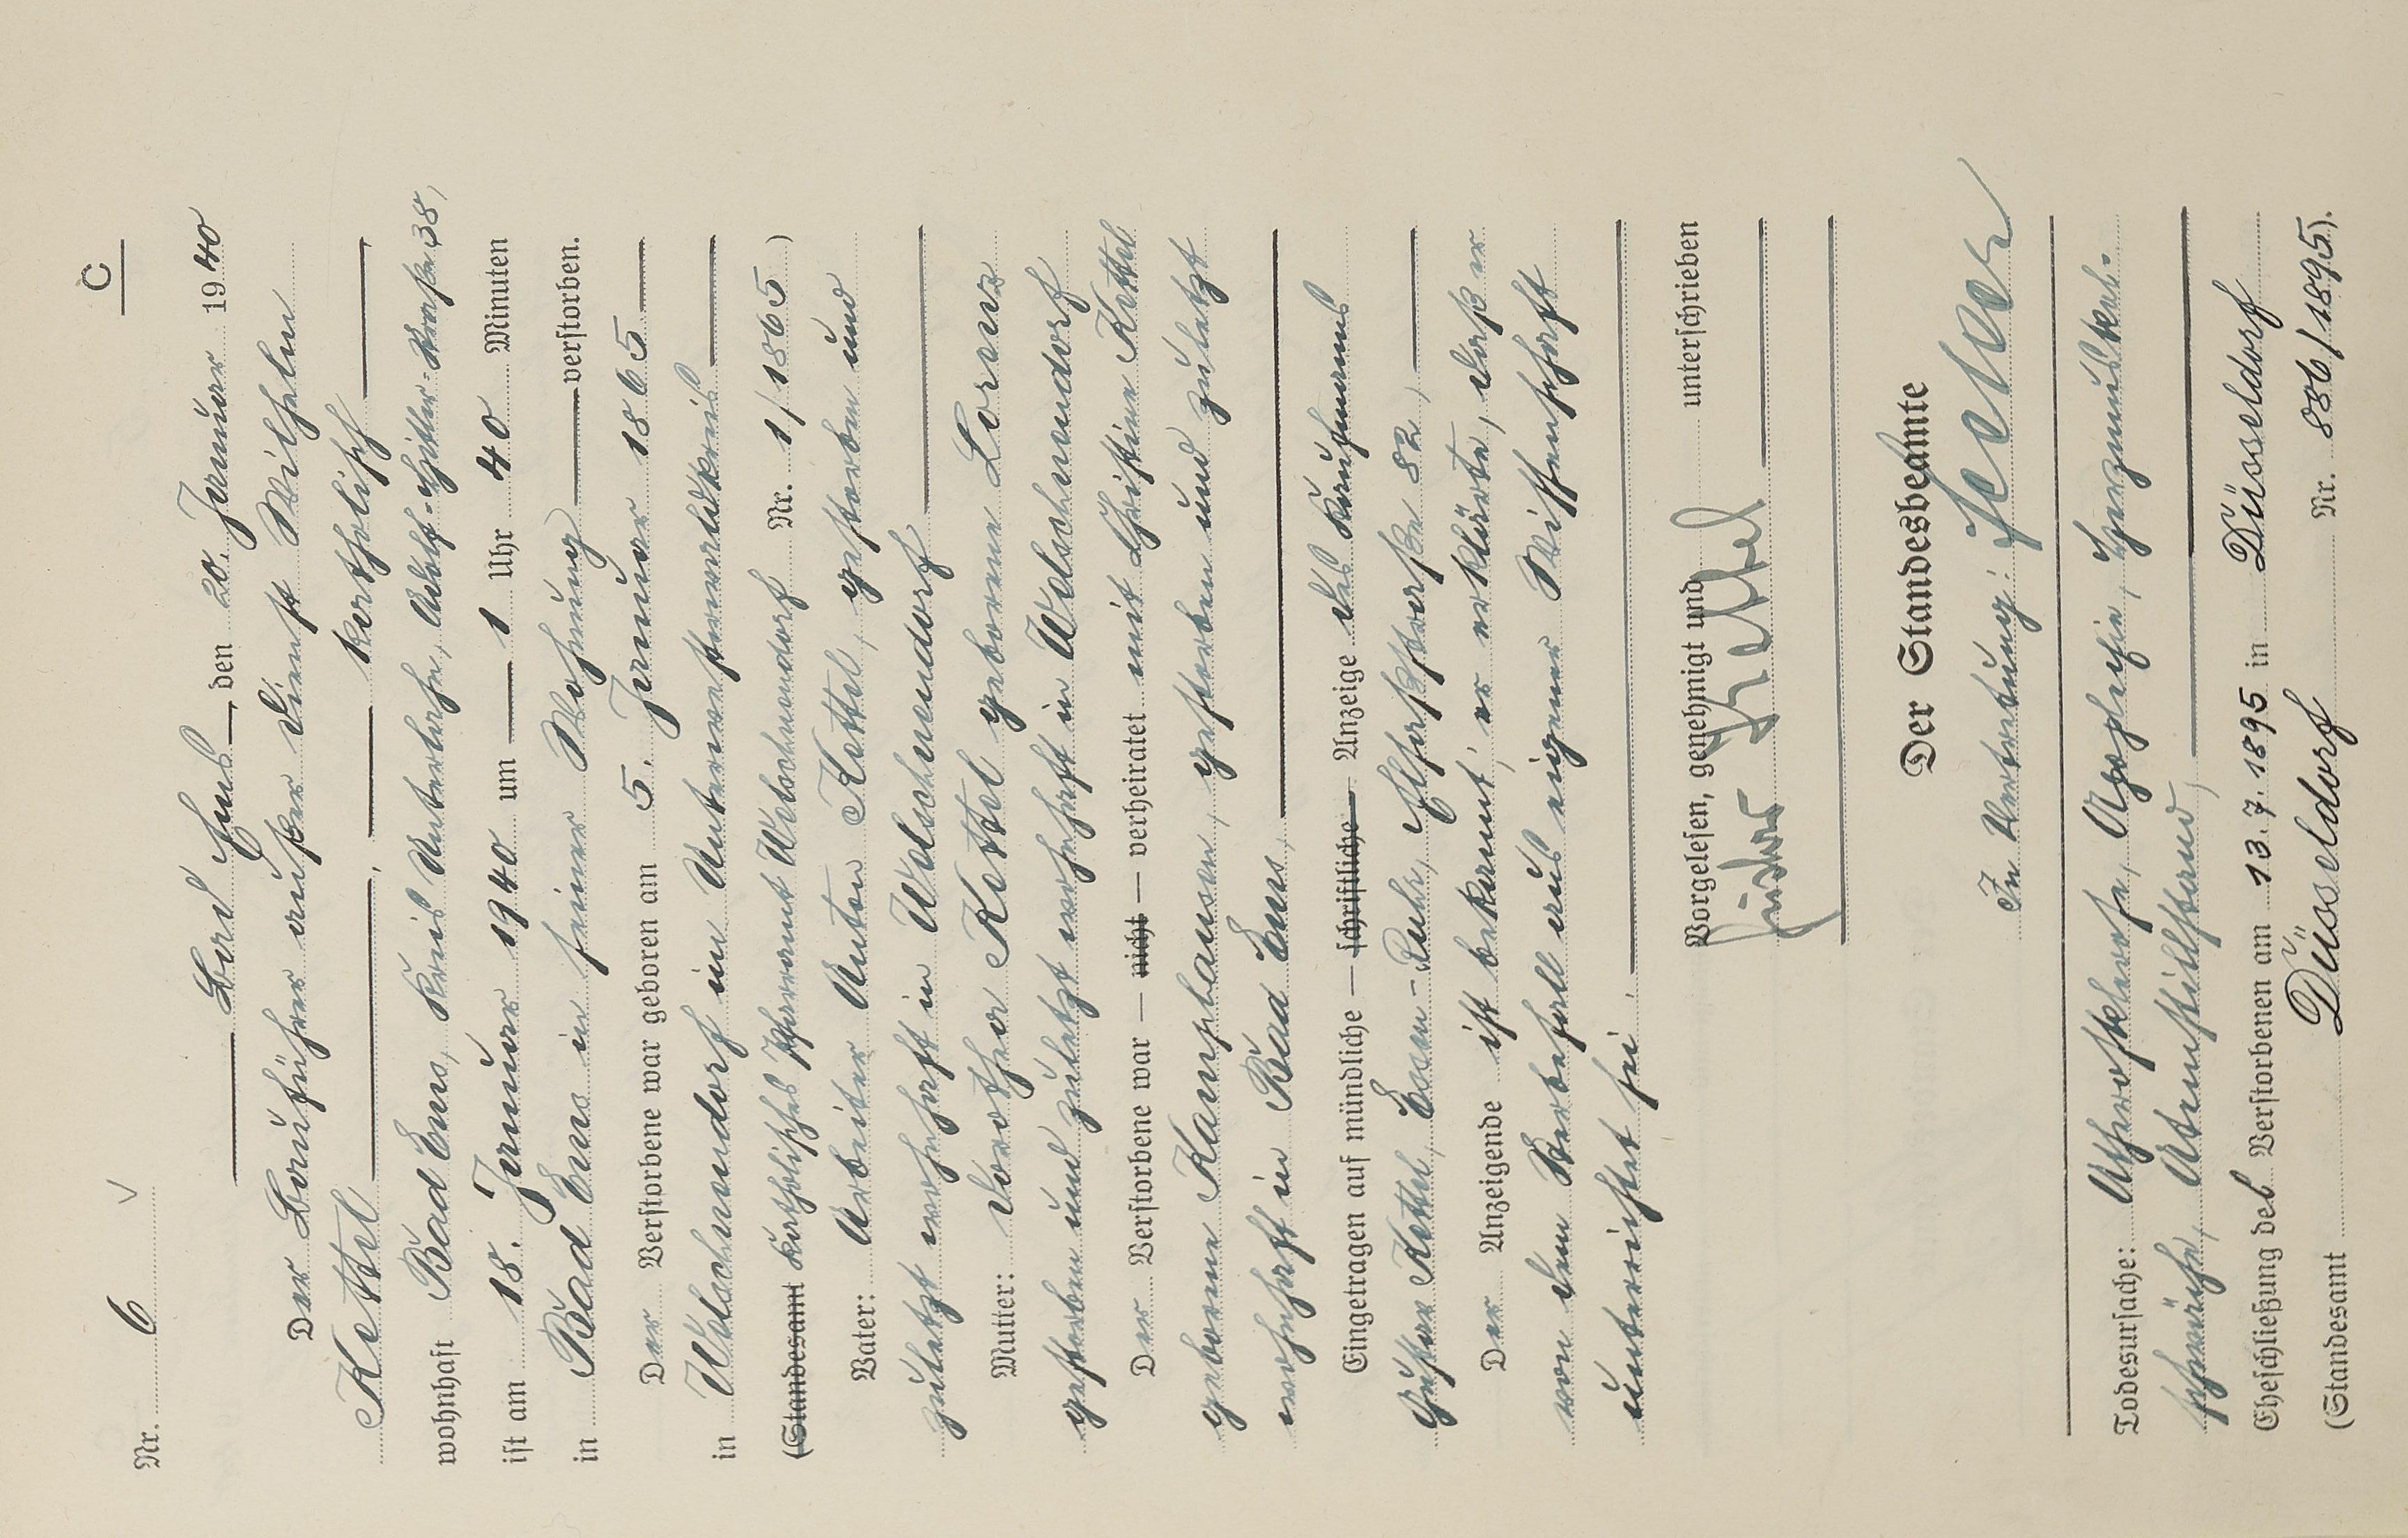 C
Nr. 6
Bad Ems, den 20. Januar 1940
Der Bauführer außer Dienst Wilhelm
Kettel, katholisch
wohnhaft Bad Ems, Kreis Unterlahn, Adolf-Hitler-Straße 38,
ist am 18. Januar 1940 um 1 Uhr 40 Minuten
in Bad Ems in seiner Wohnung verstorben.
Der Verstorbene war geboren am 5. Januar 1865
in Welschneudorf im Unterwesterwaldkreis
(Standesamt Katholisches Pfarramt Welschneudorf Nr. 1/1865)
Vater: Arbeiter Anton Kettel, gestorben und
zuletzt wohnhaft in Welschneudorf
Mutter: Dorothea Kettel geborene Lorenz
gestorben und zuletzt wohnhaft in Welschneudorf
Der Verstorbene war — nicht — verheiratet mit Christine Kettel
geborene Kamphausen, gestorben und zuletzt
wohnhaft in Bad Ems.
Eingetragen auf mündliche — schriftliche — Anzeige des Kaufmanns
Gustav Kettel, Essen-Ruhr, 82,
Der Anzeigende ist bekannt; er erklärte, daß er
von dem Sterbefall aus eigener Wissenschaft
unterrichtet sei.
Vorgelesen, genehmigt und unterschrieben
Gustav Kettel
Der Standesbeamte
In Vertretung:
Todesursache: Atherosklerose, Apoplexie, Herzmuskel-
schwäche, Atemstillstand,
Eheschließung des Verstorbenen am 13.7.1895 in Düsseldorf
(Standesamt Düsseldorf Nr. 886/1895).